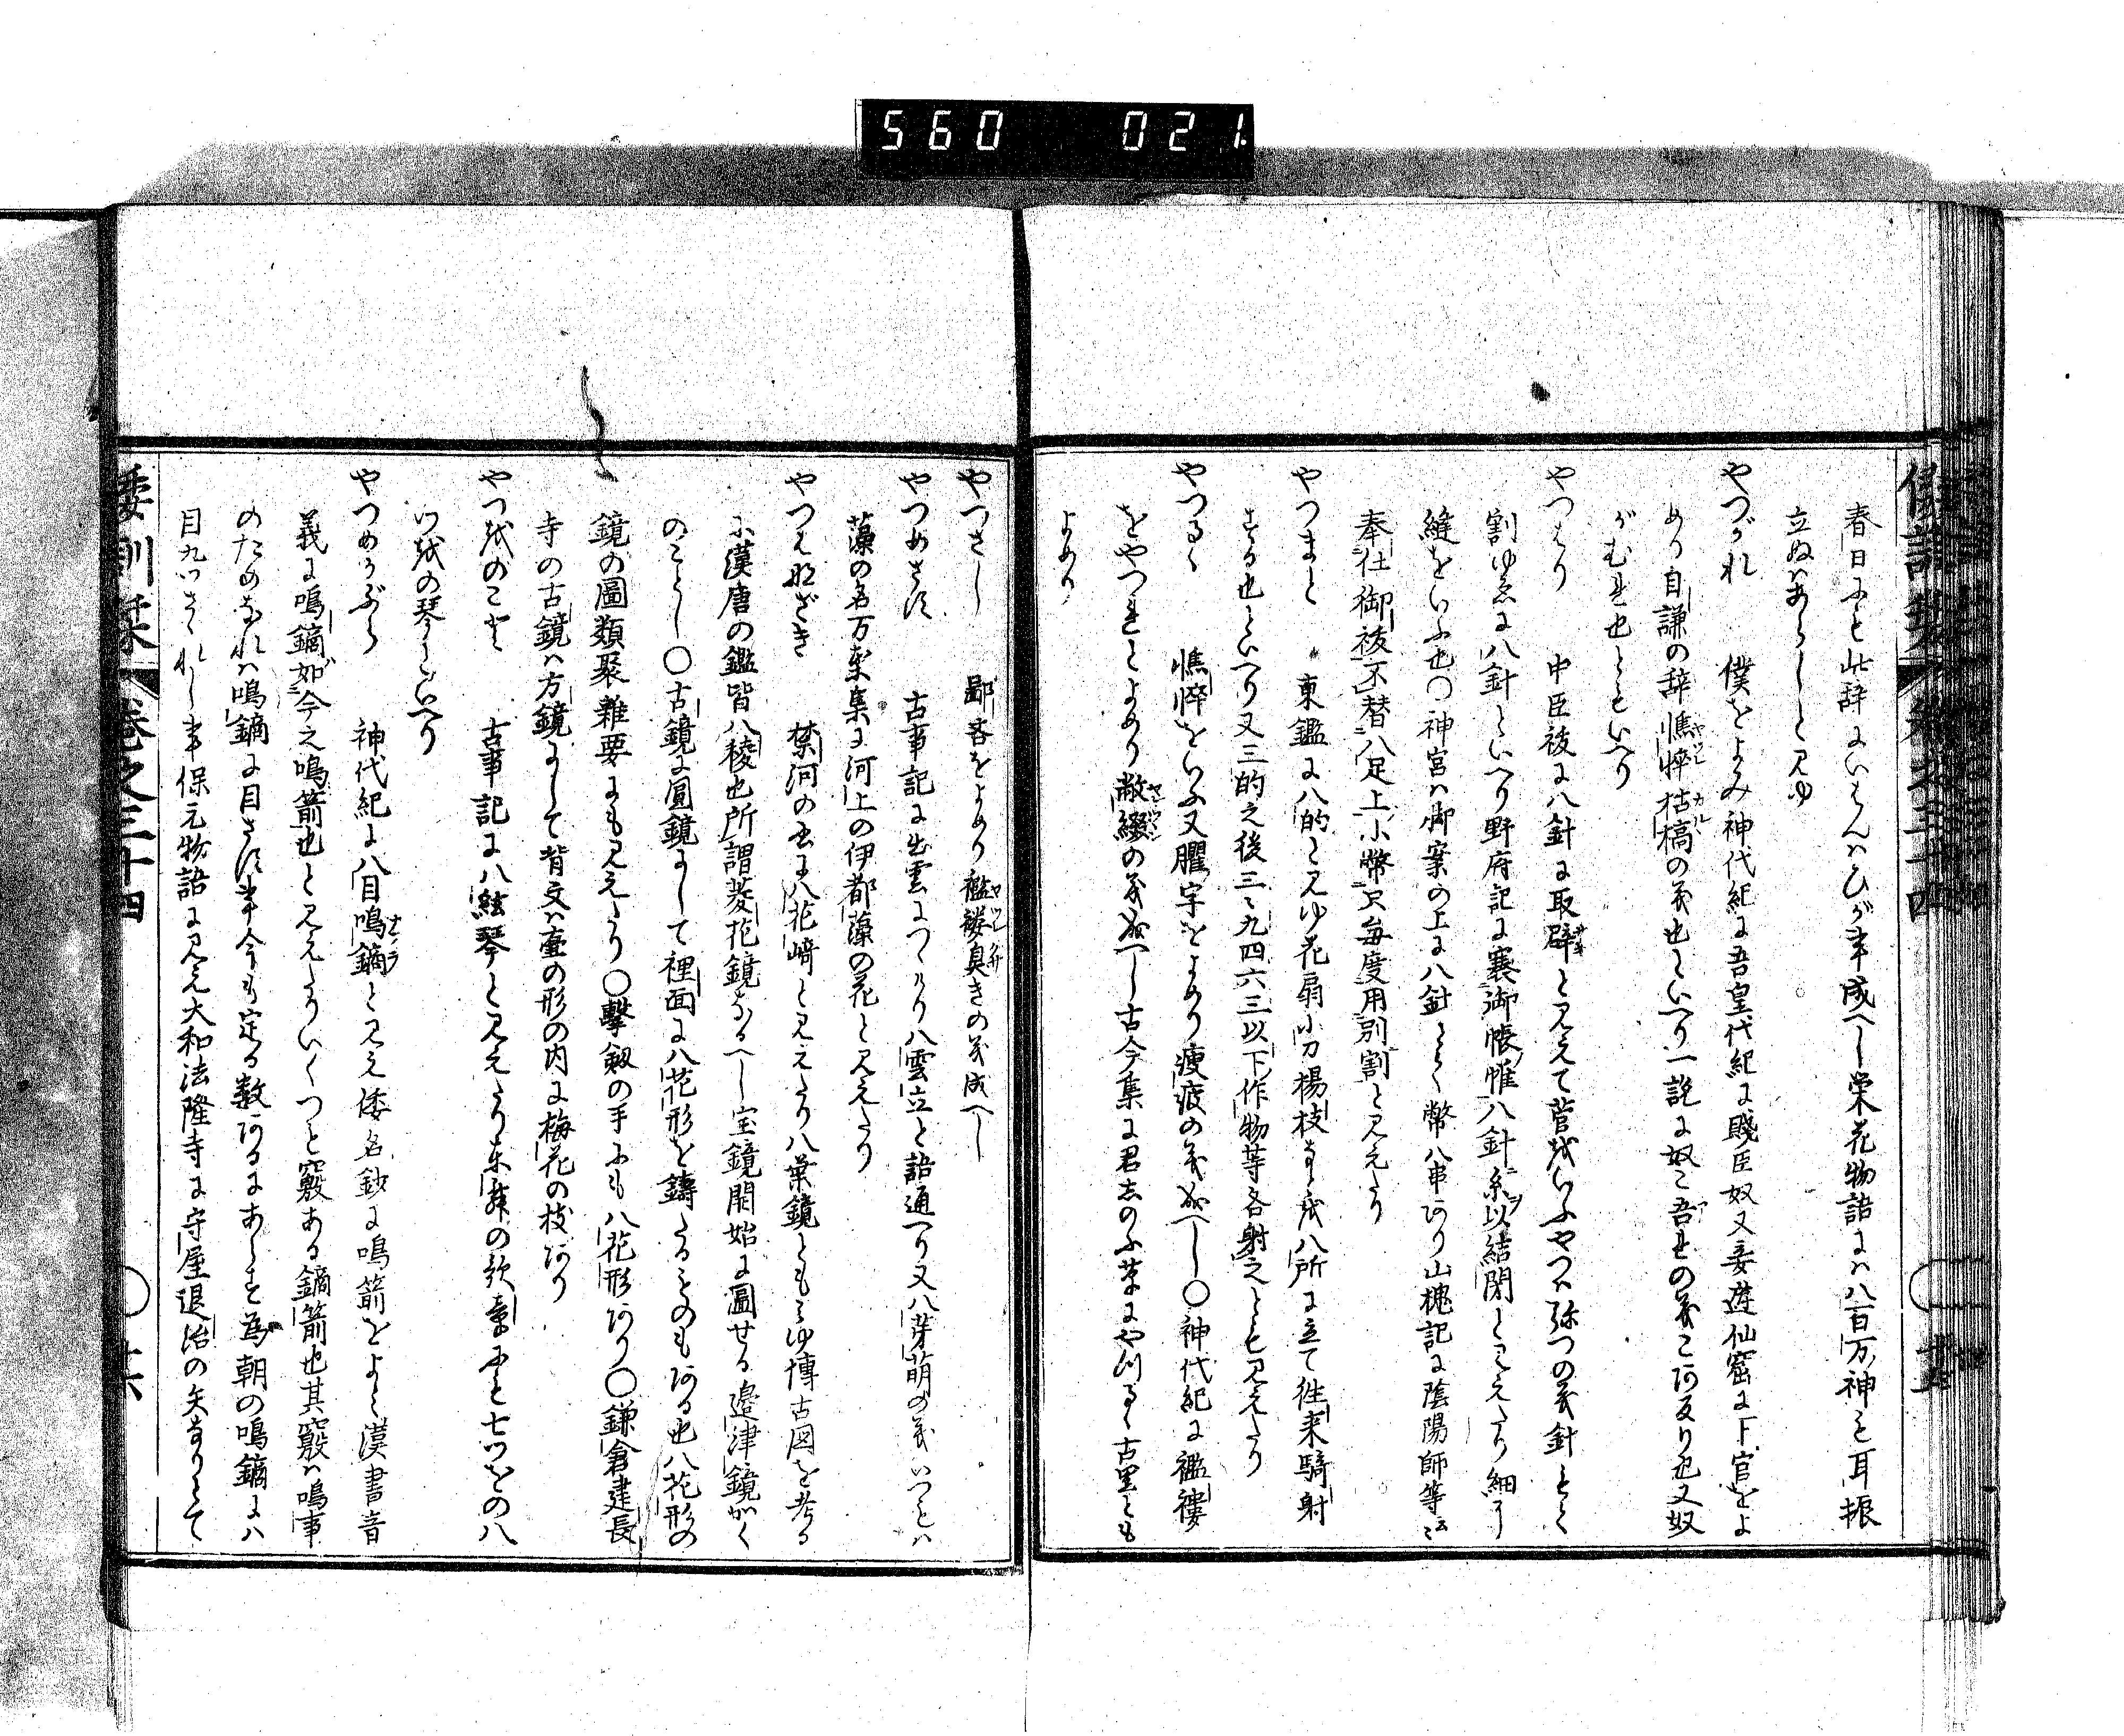 560 021
春日ふと此辞にいへるハひが事成へし栄花物語にハ八百万神も耳振
立ぬハあらしと見ゆ
やつがれ 僕をよみ神代紀に吾皇代紀に賤臣奴又妾遊仙窟に下官をよ
めり自謙の辞憔悴枯槁の義也といへり一説に奴こ吾れの義こ阿反り也又奴
がむれ也ともいへり
やつはり 中臣祓に八針に取辟と見えて菅をいふやつハ弥つの義針とく
割ゆゑに八針といへり野府記に褰御帳帷八針糸以結閇と見えたり細き
縫をいふ也〇神宮ハ御案の上に八針とく幣八串あり山槐記に陰陽師等云々
奉仕御祓不替八足上小幣只毎度用別割と見えたり
やつまと 東鑑に八的と見ゆ花扇小刀楊枝なとを八所に立て徃来騎射
する也といへり又三的之後三々九四六三以下作物等各射之とも見えたり
やつるゝ 憔悴をいふ又臞字をよめり痩疲の義成へし〇神代紀に襤褸
をやつれとよめり敝綴の義成へし古今集に君志のふ草にやつるゝ古里とも
よめり
やつさし 鄙吝をよめり襤褸臭きの義成へし
やつめさす 古事記に出雲につゝけり八雲立と語通へり又八芽萌の義いつとハ
藻の名万葉集に河上の伊都藻の花と見えたり
やつはなざき 禁河の書に八花崎と見えたり八葉鏡ともみゆ博古図を考る
ふ漢唐の鑑皆八稜也所謂菱花鏡なるへし宝鏡開始に図せる邉津鏡かく
のことし〇古鏡に圓鏡にして裡面に八花形を鋳たるものもある也八花形の
鏡の圖類聚雜要にも見えたり〇擊劔の手ふも八花形あり〇鎌倉建長
寺の古鏡ハ方鏡にして背文ハ壷の形の内に梅花の枝あり
やつをのこと 古事記に八絃琴と見えたり東舞の歌ふと七つをの八
つをの琴といへり
やつめかぶら 神代紀に八目鳴鏑と見え倭名鈔に鳴箭をよみ漢書音
義に鳴鏑如今之鳴箭也と見えたりいくつと竅ある鏑箭也其竅ハ鳴事
のためなれハ鳴鏑に目さす事今も定る数あるにあらす為朝の鳴鏑にハ
目九つさゝれし事保元物語に見え大和法隆寺に守屋退治の矢なりとて
倭訓栞 巻之三十四 〇 廿六